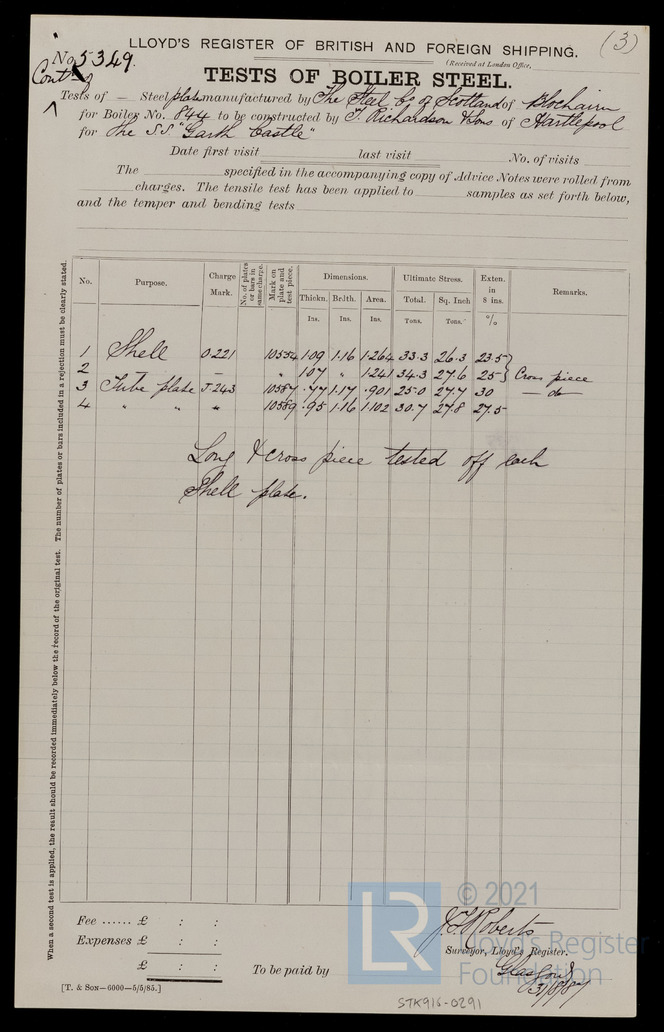 (3)
No 5349.
Contd
LLOYD'S REGISTER OF BRITISH AND FOREIGN SHIPPING.
(Received at London Office,
TESTS OF BOILER STEEL.
Tests of — Steel plates manufactured by The Steel Co of Scotland of Blochairn
for Boiler No. 844 to be constructed by T. Richardson & Sons of Hartlepool
for The S.S. "Garth Castle"
Date first visit last visit No. of visits
The specified in the accompanying copy of Advice Notes were rolled from
charges. The tensile test has been applied to samples as set forth below,
and the temper and bending tests
No. Purpose. Charge Mark. No. of plates or bars in same charge. Mark on plate and test piece. Dimensions. Ultimate Stress. Exten. in 8 ins. Remarks.
Thickn. Br'dth. Area. Total. Sq. Inch
Ins. Ins. Ins. Tons. Tons. %
1 Shell O.221 10554 1.09 1.16 1.264 33.3 26.3 23.5
2 — — " 1.07 " 1.241 34.3 27.6 25 Cross piece
3 Tube plate J.243 10587 .77 1.17 .901 25.0 27.7 30 — do —
4 " " " 10589 .95 1.16 1.102 30.7 27.8 27.5
Long & cross piece tested off each
Shell plate.
When a second test is applied, the result should be recorded immediately below the record of the original test. The number of plates or bars included in a rejection must be clearly stated.
Fee ...... £ : :
Expenses £ : :
£ : :
To be paid by
J.S. Roberts
Surveyor, Lloyd's Register.
Glasgow
31/8/87
[T. & Son—6000—5/5/85.]
STK916-0291
LR
© 2021
Lloyd's Register
Foundation